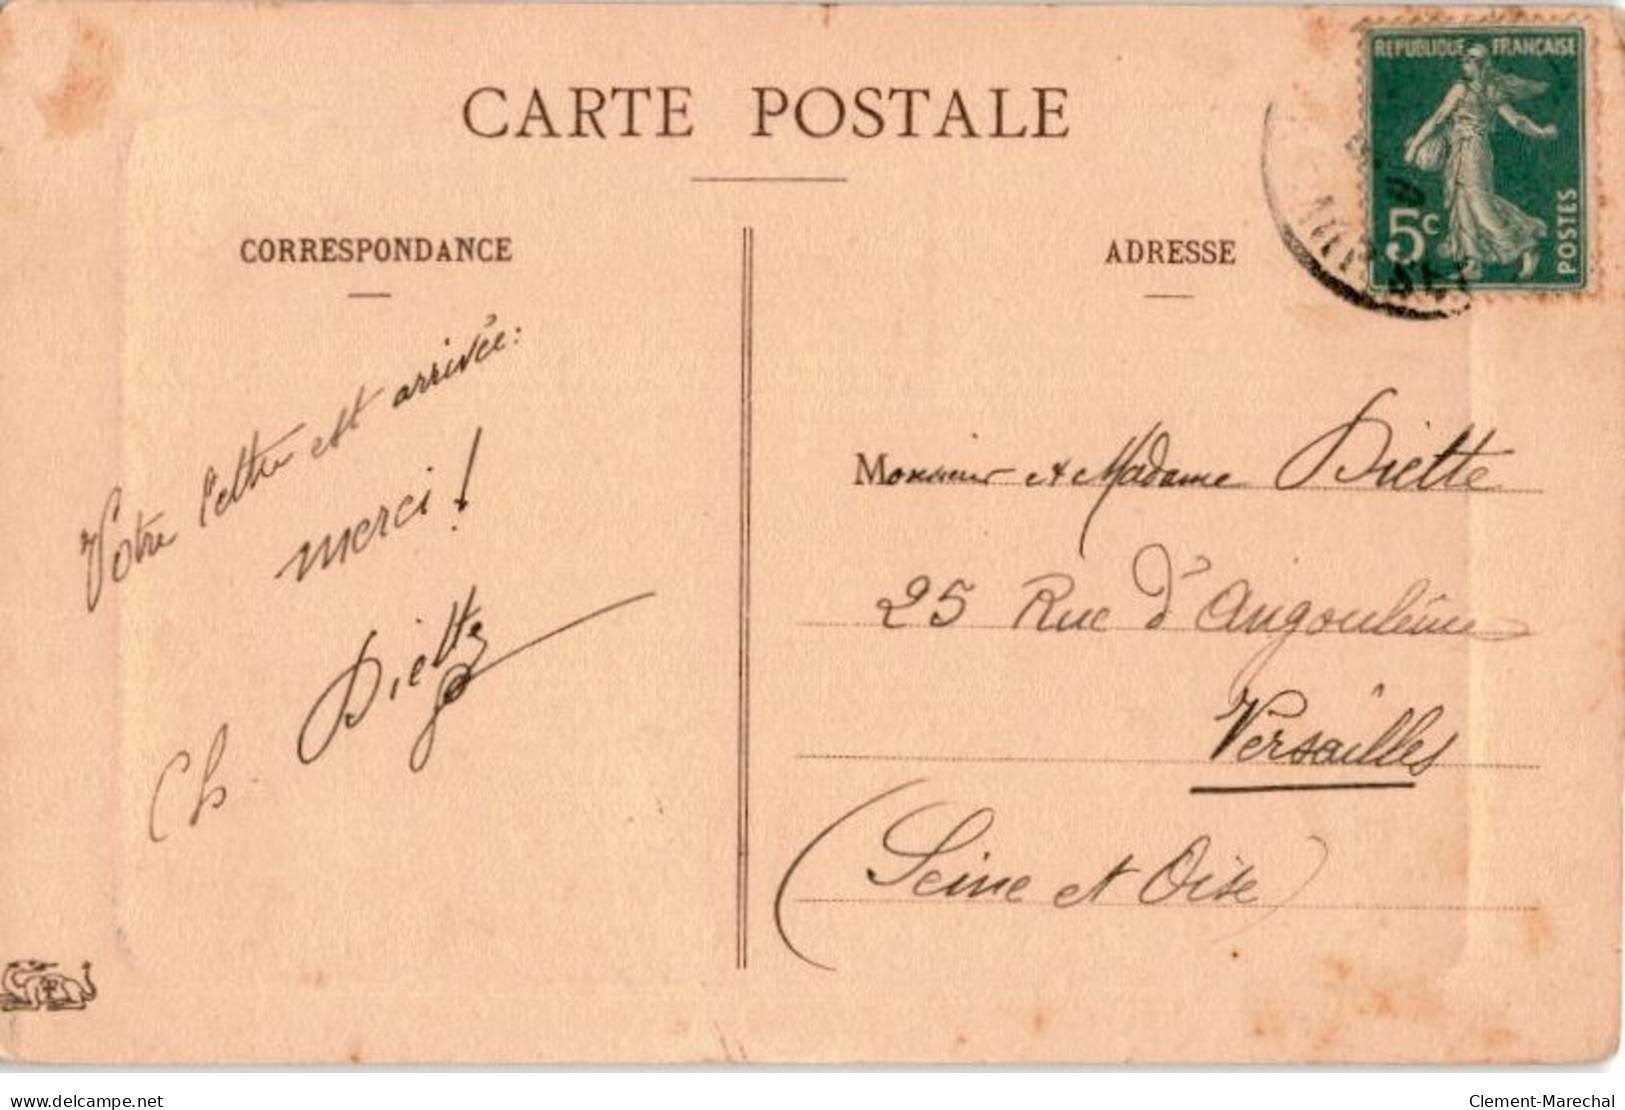 CARTE POSTALE
CORRESPONDANCE
ADRESSE
REPUBLIQUE FRANÇAISE
5c
POSTES
Votre lettre est arrivée:
merci!
Ch. Diette
Monsieur et Madame Diette
25 Rue d'Angoulême
Versailles
(Seine et Oise)
www.delcampe.net
Clement-Marechal